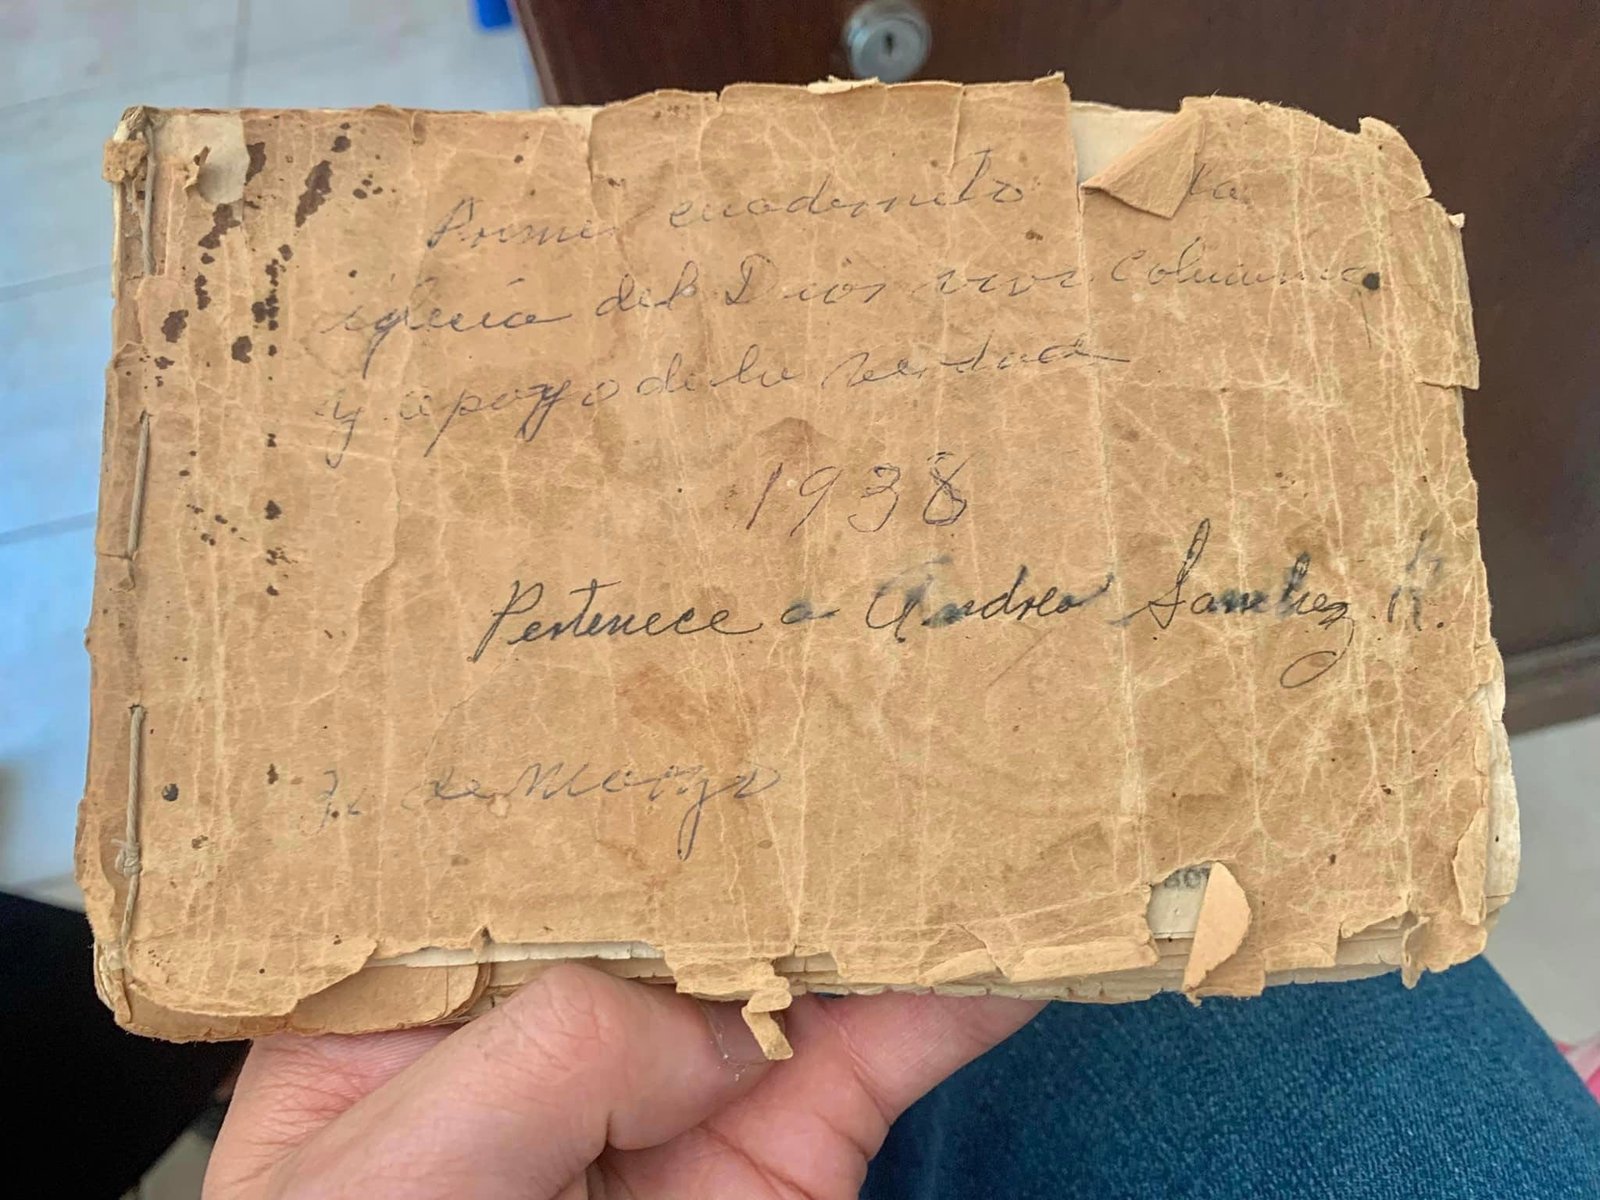 Primer cuadernito la
iglecia del Dios vivo columna
y apoyo de la verdad
1938
Pertenece a Andres Sanchez
de Marzo